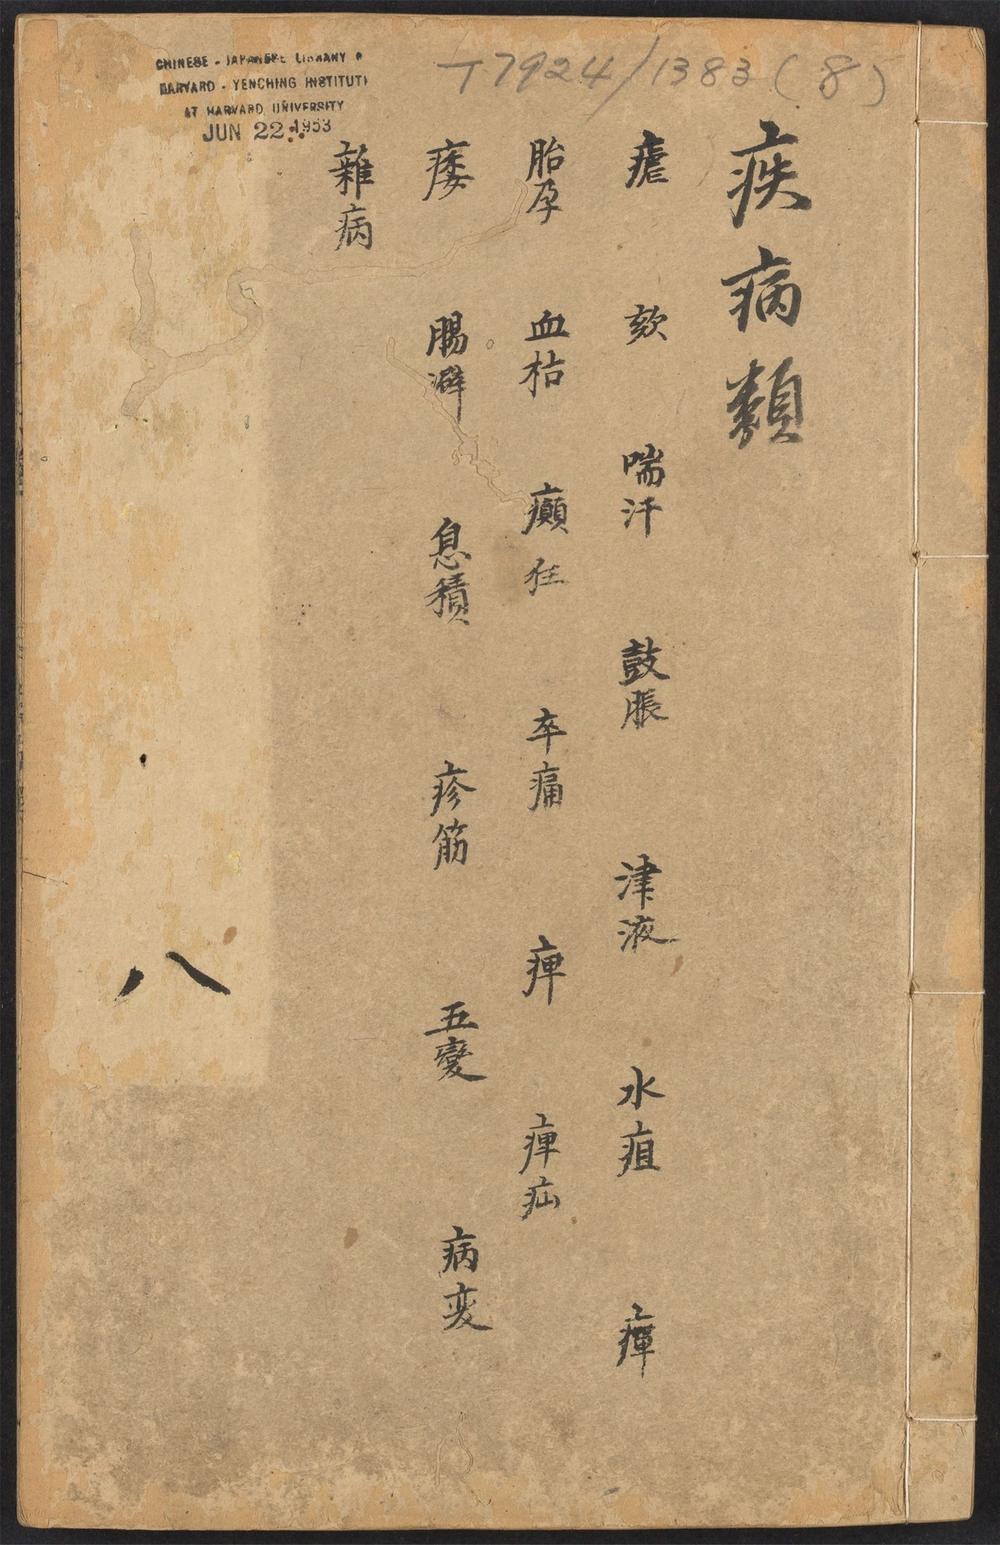 CHINESE - JAPANESE LIBRARY
HARVARD - YENCHING INSTITUTE
AT HARVARD UNIVERSITY
JUN 22 1953
T7924/1383 (8)
疾病類
瘧 欬 喘汗 鼓脹 津液 水疽 癉
胎孕 血枯 癲狂 卒痛 痺 疝
痿 腸澼 息積 疹筋 五變 病変
雜病
八